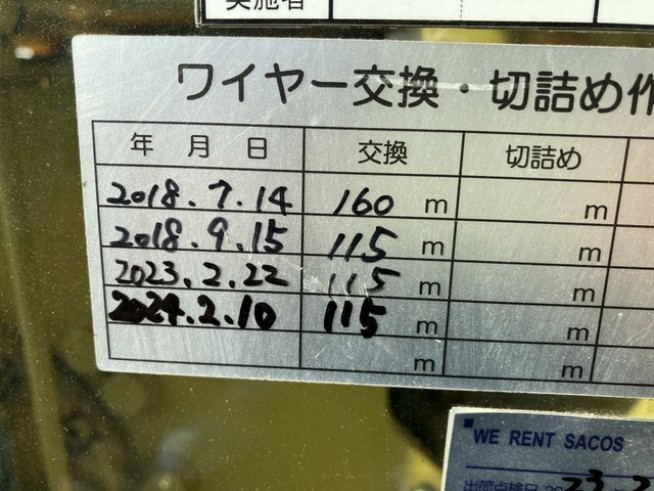 実施者
ワイヤー交換・切詰め作
年 月 日 交換 切詰め
2018.7.14 160 m m
2018.9.15 115 m m
2023.2.22 115 m m
2024.2.10 115 m m
m m
WE RENT SACOS
出荷点検日 2023.2